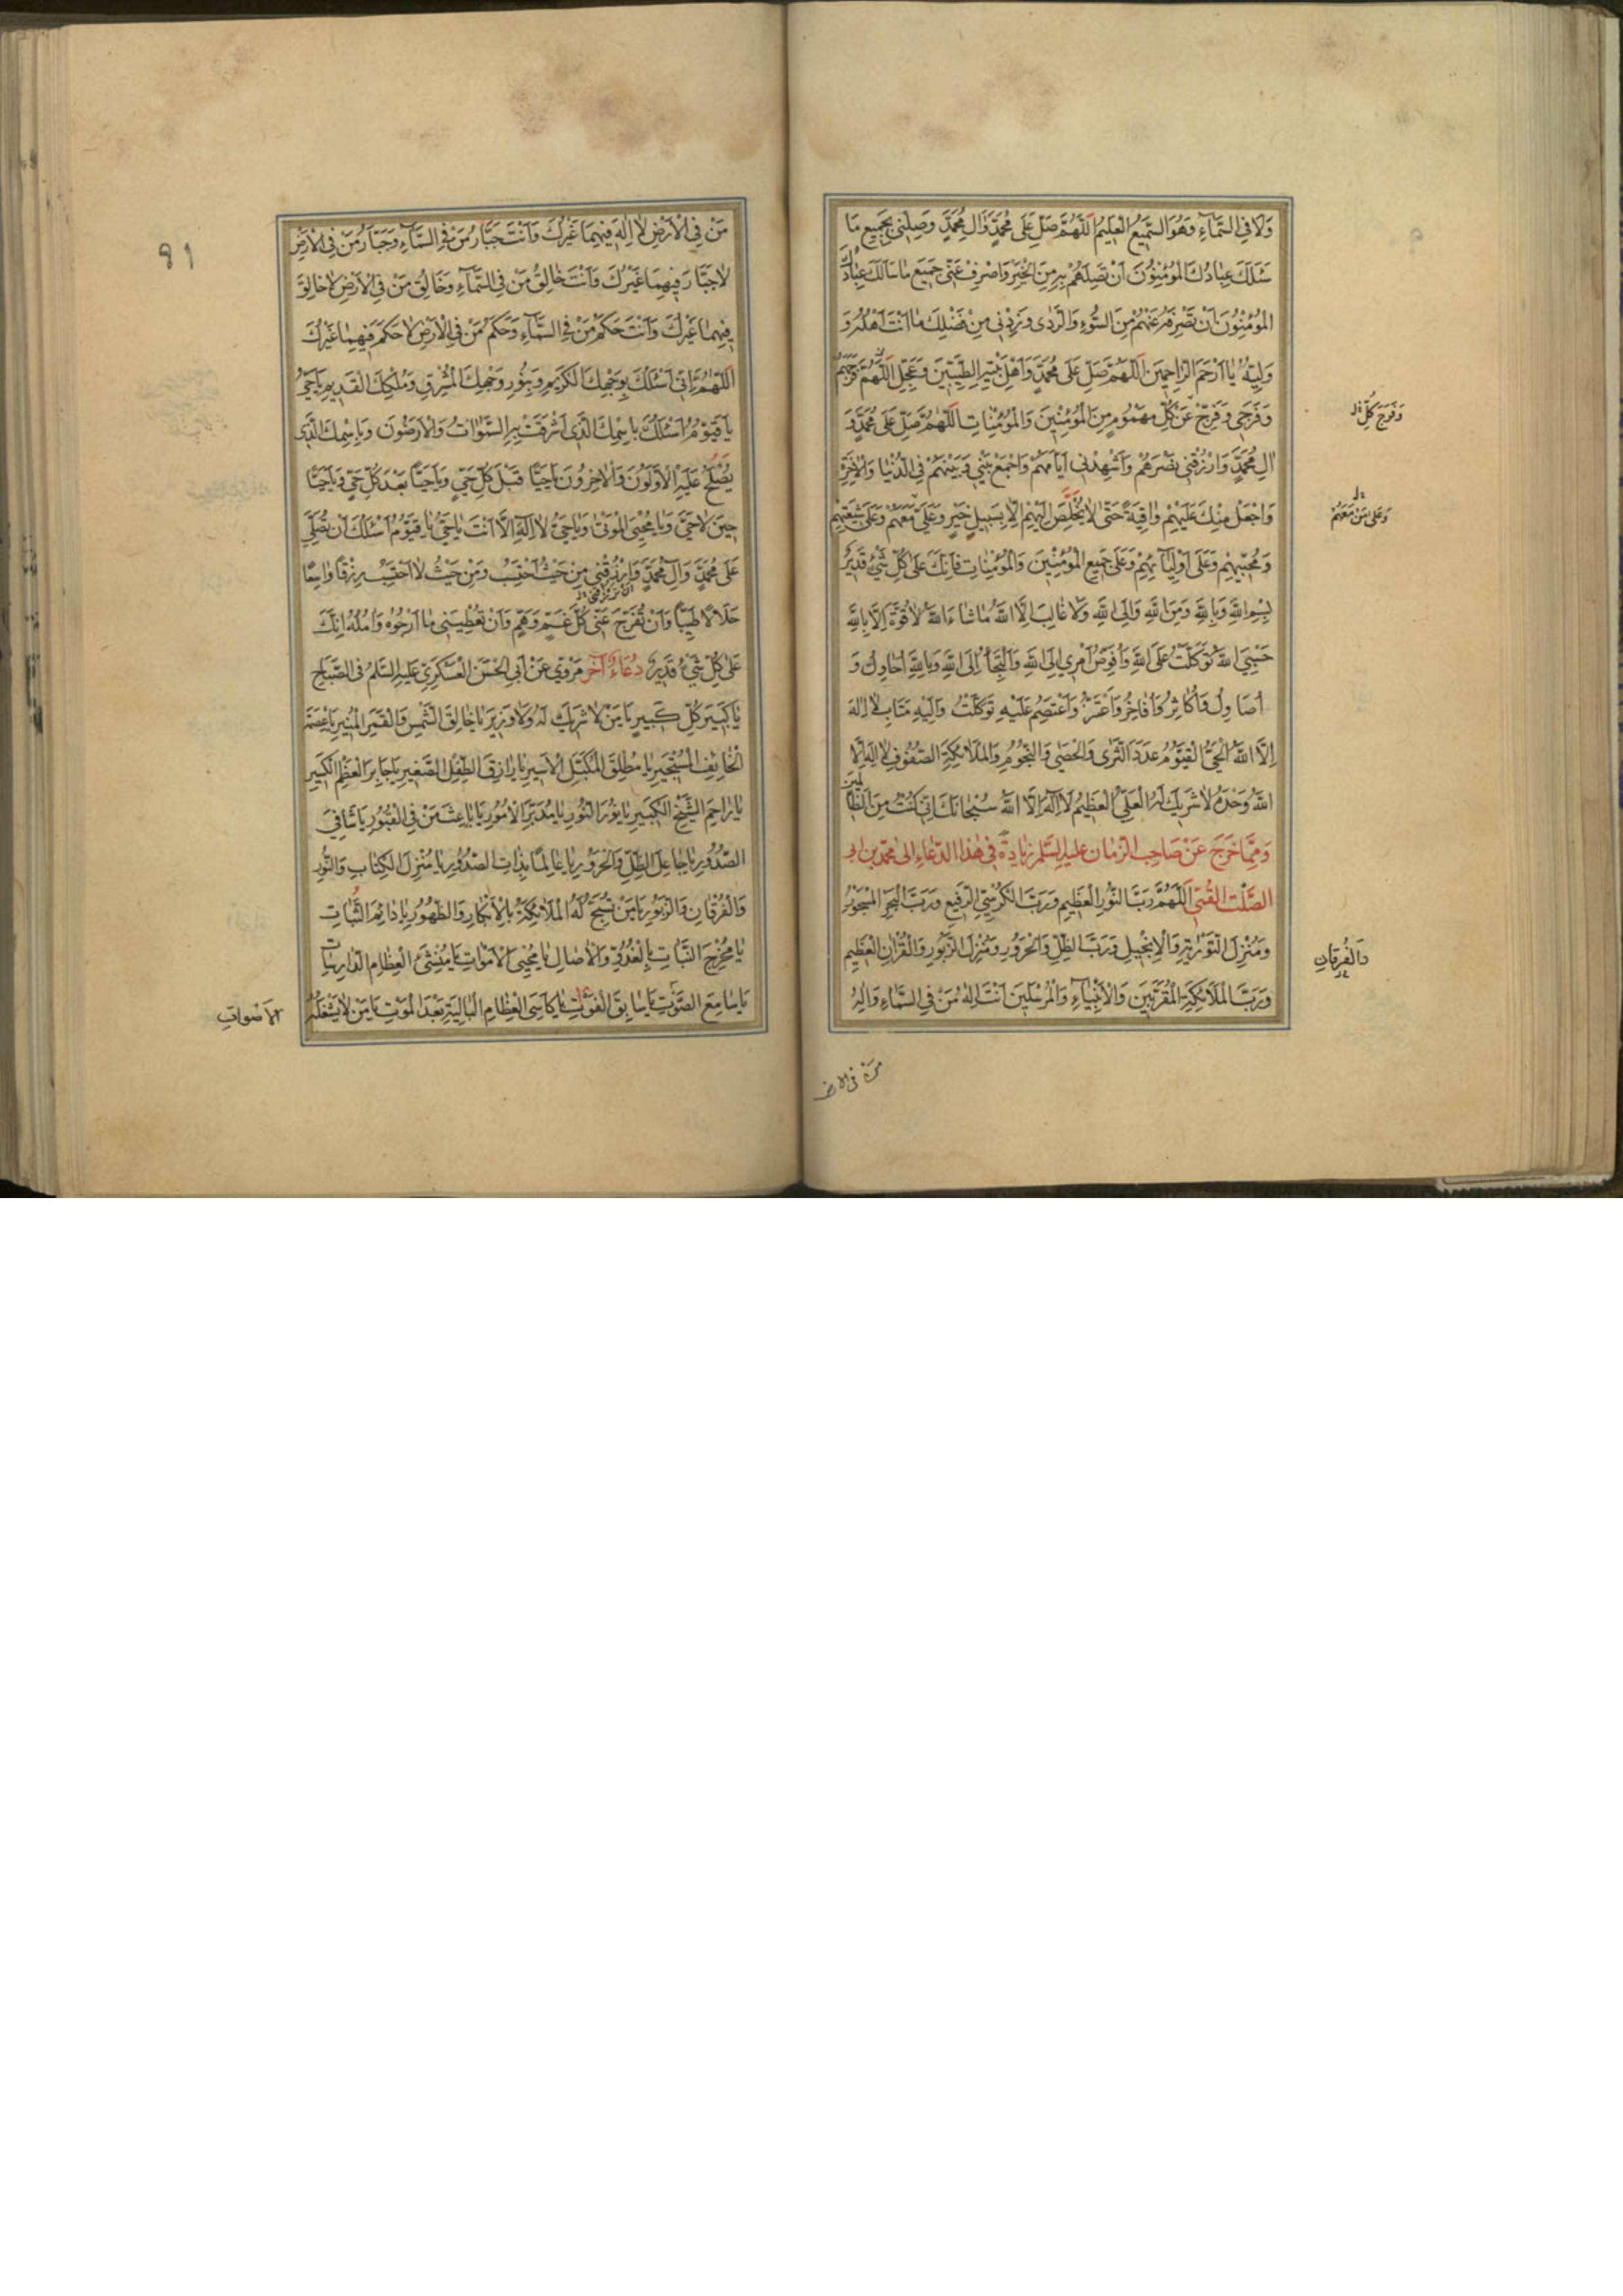 وَلَا فِي السَّمَآءِ وَهُوَ السَّمِيعُ الْعَلِيمُ اَللّٰهُمَّ صَلِّ عَلٰى مُحَمَّدٍ وَاٰلِ مُحَمَّدٍ وَصِلْنِي بِجَمِيعِ مَا
سَئَلَكَ عِبَادُكَ الْمُؤْمِنُونَ اَنْ تَصِلَهُمْ بِهِ مِنَ الْخَيْرِ وَاصْرِفْ عَنِّي جَمِيعَ مَا سَاَلَكَ عِبَادُكَ
الْمُؤْمِنُونَ اَنْ تَصْرِفَهُ عَنْهُمْ مِنَ السُّوءِ وَالرَّدٰى وَزِدْنِي مِنْ فَضْلِكَ مَا اَنْتَ اَهْلُهُ وَ
وَلِيُّهُ يَا اَرْحَمَ الرَّاحِمِينَ اَللّٰهُمَّ صَلِّ عَلٰى مُحَمَّدٍ وَاَهْلِ بَيْتِهِ الطَّيِّبِينَ وَعَجِّلِ اللّٰهُمَّ فَرَجَهُمْ
وَفَرَجِي وَفَرِّجْ عَنْ كُلِّ مَهْمُومٍ مِنَ الْمُؤْمِنِينَ وَالْمُؤْمِنَاتِ اَللّٰهُمَّ صَلِّ عَلٰى مُحَمَّدٍ وَ
وَفَرَجَ كُلِّ
اٰلِ مُحَمَّدٍ وَارْزُقْنِي نَصْرَهُمْ وَاَشْهِدْنِي اَيَّامَهُمْ وَاجْمَعْ بَيْنِي وَبَيْنَهُمْ فِي الدُّنْيَا وَالْاٰخِرَةِ
وَاجْعَلْ مِنْكَ عَلَيْهِمْ وَاقِيَةً حَتّٰى لَا يُخْلَصَ اِلَيْهِمْ اِلَّا بِسَبِيلِ خَيْرٍ وَعَلَيَّ مَعَهُمْ وَعَلٰى شِيعَتِهِمْ
وَعَلٰى مَنْ مَعَهُمْ
وَمُحِبِّيهِمْ وَعَلٰى اَوْلِيَآئِهِمْ وَعَلٰى جَمِيعِ الْمُؤْمِنِينَ وَالْمُؤْمِنَاتِ فَاِنَّكَ عَلٰى كُلِّ شَيْءٍ قَدِيرٌ
بِسْمِ اللّٰهِ وَبِاللّٰهِ وَمِنَ اللّٰهِ وَاِلَى اللّٰهِ وَلَا غَالِبَ اِلَّا اللّٰهُ مَا شَاءَ اللّٰهُ لَا قُوَّةَ اِلَّا بِاللّٰهِ
حَسْبِيَ اللّٰهُ تَوَكَّلْتُ عَلَى اللّٰهِ وَاُفَوِّضُ اَمْرِي اِلَى اللّٰهِ وَاَلْتَجِأُ اِلَى اللّٰهِ وَبِاللّٰهِ اُحَاوِلُ وَ
اُصَاوِلُ وَاُكَاثِرُ وَاُفَاخِرُ وَاَعْتَزُّ وَاَعْتَصِمُ عَلَيْهِ تَوَكَّلْتُ وَاِلَيْهِ مَتَابِ لَا اِلٰهَ
اِلَّا اللّٰهُ الْحَيُّ الْقَيُّومُ عَدَدَ الثَّرٰى وَالْحَصٰى وَالنُّجُومِ وَالْمَلَائِكَةِ الصُّفُوفِ لَا اِلٰهَ اِلَّا
اللّٰهُ وَحْدَهُ لَا شَرِيكَ لَهُ الْعَلِيُّ الْعَظِيمُ لَا اِلٰهَ اِلَّا اللّٰهُ سُبْحَانَكَ اِنِّي كُنْتُ مِنَ الظَّالِمِينَ
وَمِمَّا خَرَجَ عَنْ صَاحِبِ الزَّمَانِ عليه السَّلم زِيَادَةٌ فِي هٰذَا الدُّعَاءِ اِلٰى مُحَمَّدِ بن ابي
الصَّلْتِ القُمِيّ اَللّٰهُمَّ رَبَّ النُّورِ الْعَظِيمِ وَرَبَّ الْكُرْسِيِّ الرَّفِيعِ وَرَبَّ الْبَحْرِ الْمَسْجُورِ
وَمُنْزِلَ التَّوْرٰيةِ وَالْاِنْجِيلِ وَرَبَّ الظِّلِّ وَالْحَرُورِ وَمُنْزِلَ الزَّبُورِ وَالْقُرْاٰنِ الْعَظِيمِ
وَالْفُرْقَانِ
وَرَبَّ الْمَلَائِكَةِ الْمُقَرَّبِينَ وَالْاَنْبِيَآءِ وَالْمُرْسَلِينَ اَنْتَ اِلٰهُ مَنْ فِي السَّمَاءِ وَاِلٰهُ
مَنْ فِي الارض
91
مَنْ فِي الْاَرْضِ لَا اِلٰهَ فِيهِمَا غَيْرُكَ وَاَنْتَ جَبَّارُ مَنْ فِي السَّمَآءِ وَجَبَّارُ مَنْ فِي الْاَرْضِ
لَا جَبَّارَ فِيهِمَا غَيْرُكَ وَاَنْتَ خَالِقُ مَنْ فِي السَّمَآءِ وَخَالِقُ مَنْ فِي الْاَرْضِ لَا خَالِقَ
فِيهِمَا غَيْرُكَ وَاَنْتَ حَكَمُ مَنْ فِي السَّمَآءِ وَحَكَمُ مَنْ فِي الْاَرْضِ لَا حَكَمَ فِيهِمَا غَيْرُكَ
اَللّٰهُمَّ اِنِّي اَسْئَلُكَ بِوَجْهِكَ الْكَرِيمِ وَبِنُورِ وَجْهِكَ الْمُشْرِقِ وَمُلْكِكَ الْقَدِيمِ يَا حَيُّ
يَا قَيُّومُ اَسْئَلُكَ بِاسْمِكَ الَّذِي اَشْرَقَتْ بِهِ السَّمٰوَاتُ وَالْاَرَضُونَ وَبِاسْمِكَ الَّذِي
يَصْلُحُ عَلَيْهِ الْاَوَّلُونَ وَالْاٰخِرُونَ يَا حَيًّا قَبْلَ كُلِّ حَيٍّ وَيَا حَيًّا بَعْدَ كُلِّ حَيٍّ وَيَا حَيًّا
حِينَ لَا حَيَّ وَيَا مُحْيِيَ الْمَوْتٰى وَيَا حَيُّ لَا اِلٰهَ اِلَّا اَنْتَ يَا حَيُّ يَا قَيُّومُ اَسْئَلُكَ اَنْ تُصَلِّيَ
عَلٰى مُحَمَّدٍ وَاٰلِ مُحَمَّدٍ وَارْزُقْنِي مِنْ حَيْثُ اَحْتَسِبُ وَمِنْ حَيْثُ لَا اَحْتَسِبُ رِزْقًا وَاسِعًا
حَلَالًا طَيِّبًا وَاَنْ تُفَرِّجَ عَنِّي كُلَّ غَمٍّ وَهَمٍّ وَاَنْ تُعْطِيَنِي مَا اَرْجُوهُ وَاٰمُلُهُ اِنَّكَ
عَلٰى كُلِّ شَيْءٍ قَدِيرٌ دُعَاءٌ آخَر مَرْوِي عَنْ اَبِي الْحَسَنِ الْعَسْكَرِيِّ عَلَيْهِ السَّلَمُ فِي الصَّبَاحِ
يَا كَبِيرَ كُلِّ كَبِيرٍ يَا مَنْ لَا شَرِيكَ لَهُ وَلَا وَزِيرَ يَا خَالِقَ الشَّمْسِ وَالْقَمَرِ الْمُنِيرِ يَا عِصْمَةَ
الْخَائِفِ الْمُسْتَجِيرِ يَا مُطْلِقَ الْمُكَبَّلِ الْاَسِيرِ يَا رَازِقَ الطِّفْلِ الصَّغِيرِ يَا جَابِرَ الْعَظْمِ الْكَسِيرِ
يَا رَاحِمَ الشَّيْخِ الْكَبِيرِ يَا نُورَ النُّورِ يَا مُدَبِّرَ الْاُمُورِ يَا بَاعِثَ مَنْ فِي الْقُبُورِ يَا شَافِيَ
الصُّدُورِ يَا جَاعِلَ الظِّلِّ وَالْحَرُورِ يَا عَالِمًا بِذَاتِ الصُّدُورِ يَا مُنْزِلَ الْكِتَابِ وَالنُّورِ
وَالْفُرْقَانِ وَالزَّبُورِ يَا مَنْ تُسَبِّحُ لَهُ الْمَلَائِكَةُ بِالْاِبْكَارِ وَالظُّهُورِ يَا دَائِمَ الثَّبَاتِ
يَا مُخْرِجَ النَّبَاتِ بِالْغُدُوِّ وَالْاٰصَالِ يَا مُحْيِيَ الْاَمْوَاتِ يَا مُنْشِئَ الْعِظَامِ الدَّارِسَاتِ
يَا سَامِعَ الصَّوْتِ يَا سَابِقَ الْفَوْتِ يَا كَاسِيَ الْعِظَامِ الْبَالِيَةِ بَعْدَ الْمَوْتِ يَا مَنْ لَا يَشْغَلُهُ
الْاَصْوَاتِ